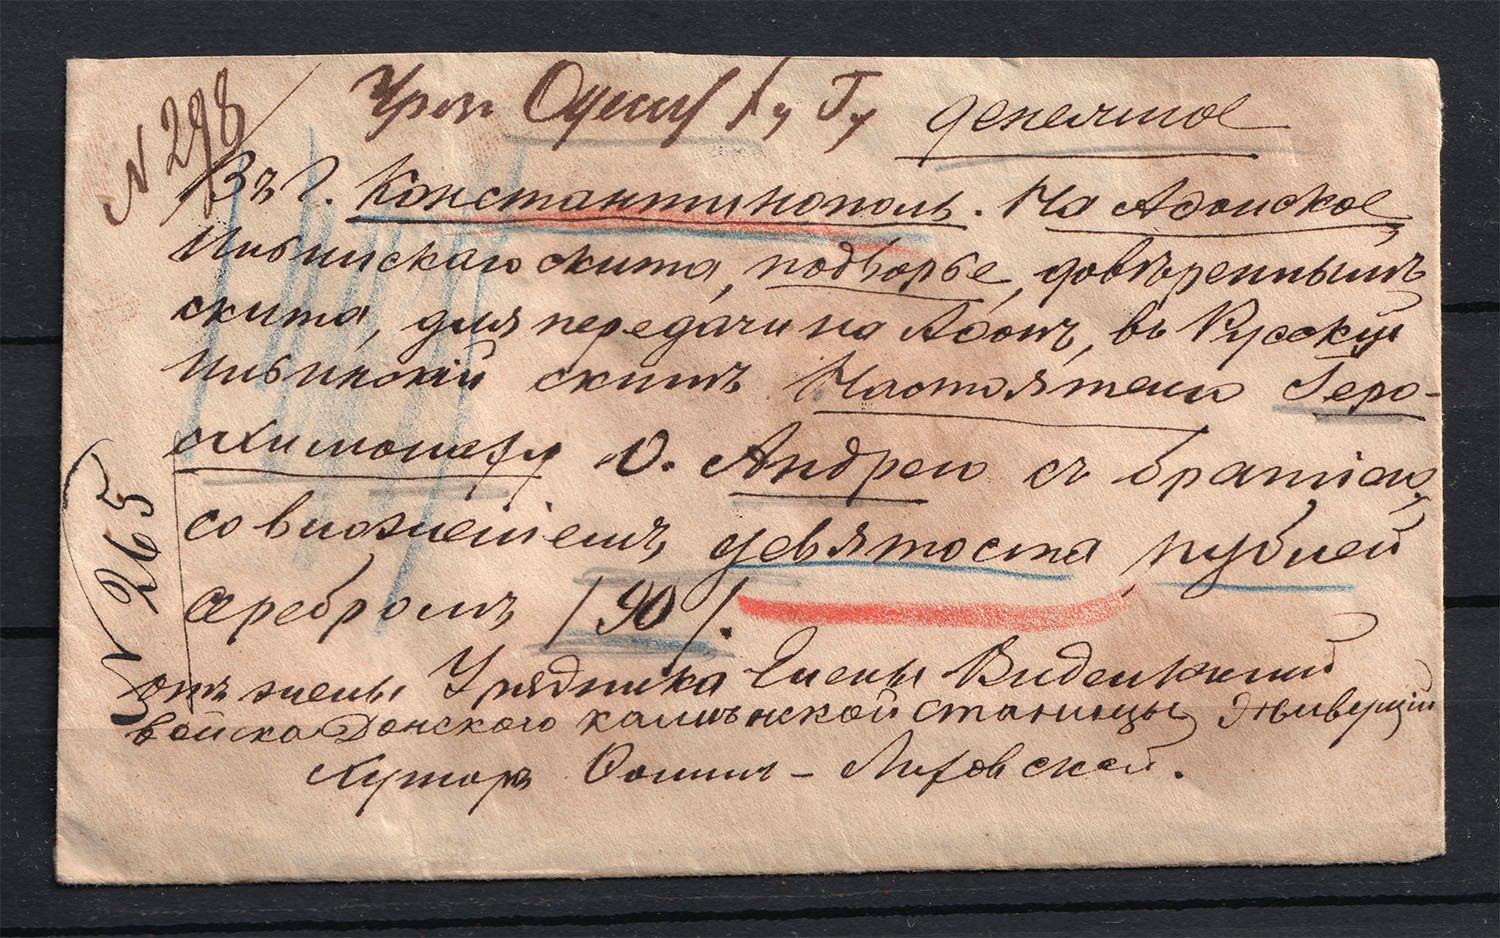 N 298
Чрез Одессу денежное
Въ г. Константинополь. На Афонское
Ильинскаго скита, подворье, довѣреннымъ
скита, для передачи на Афонъ, въ Русскій
Ильинскій скитъ Настоятелю Іеро-
схимонаху О. Андрею съ братіею,
со вложеніемъ девятоста рублей
серебромъ /90/.
N 265
отъ жены Урядника Елены
войска Донского станицы
Хуторъ